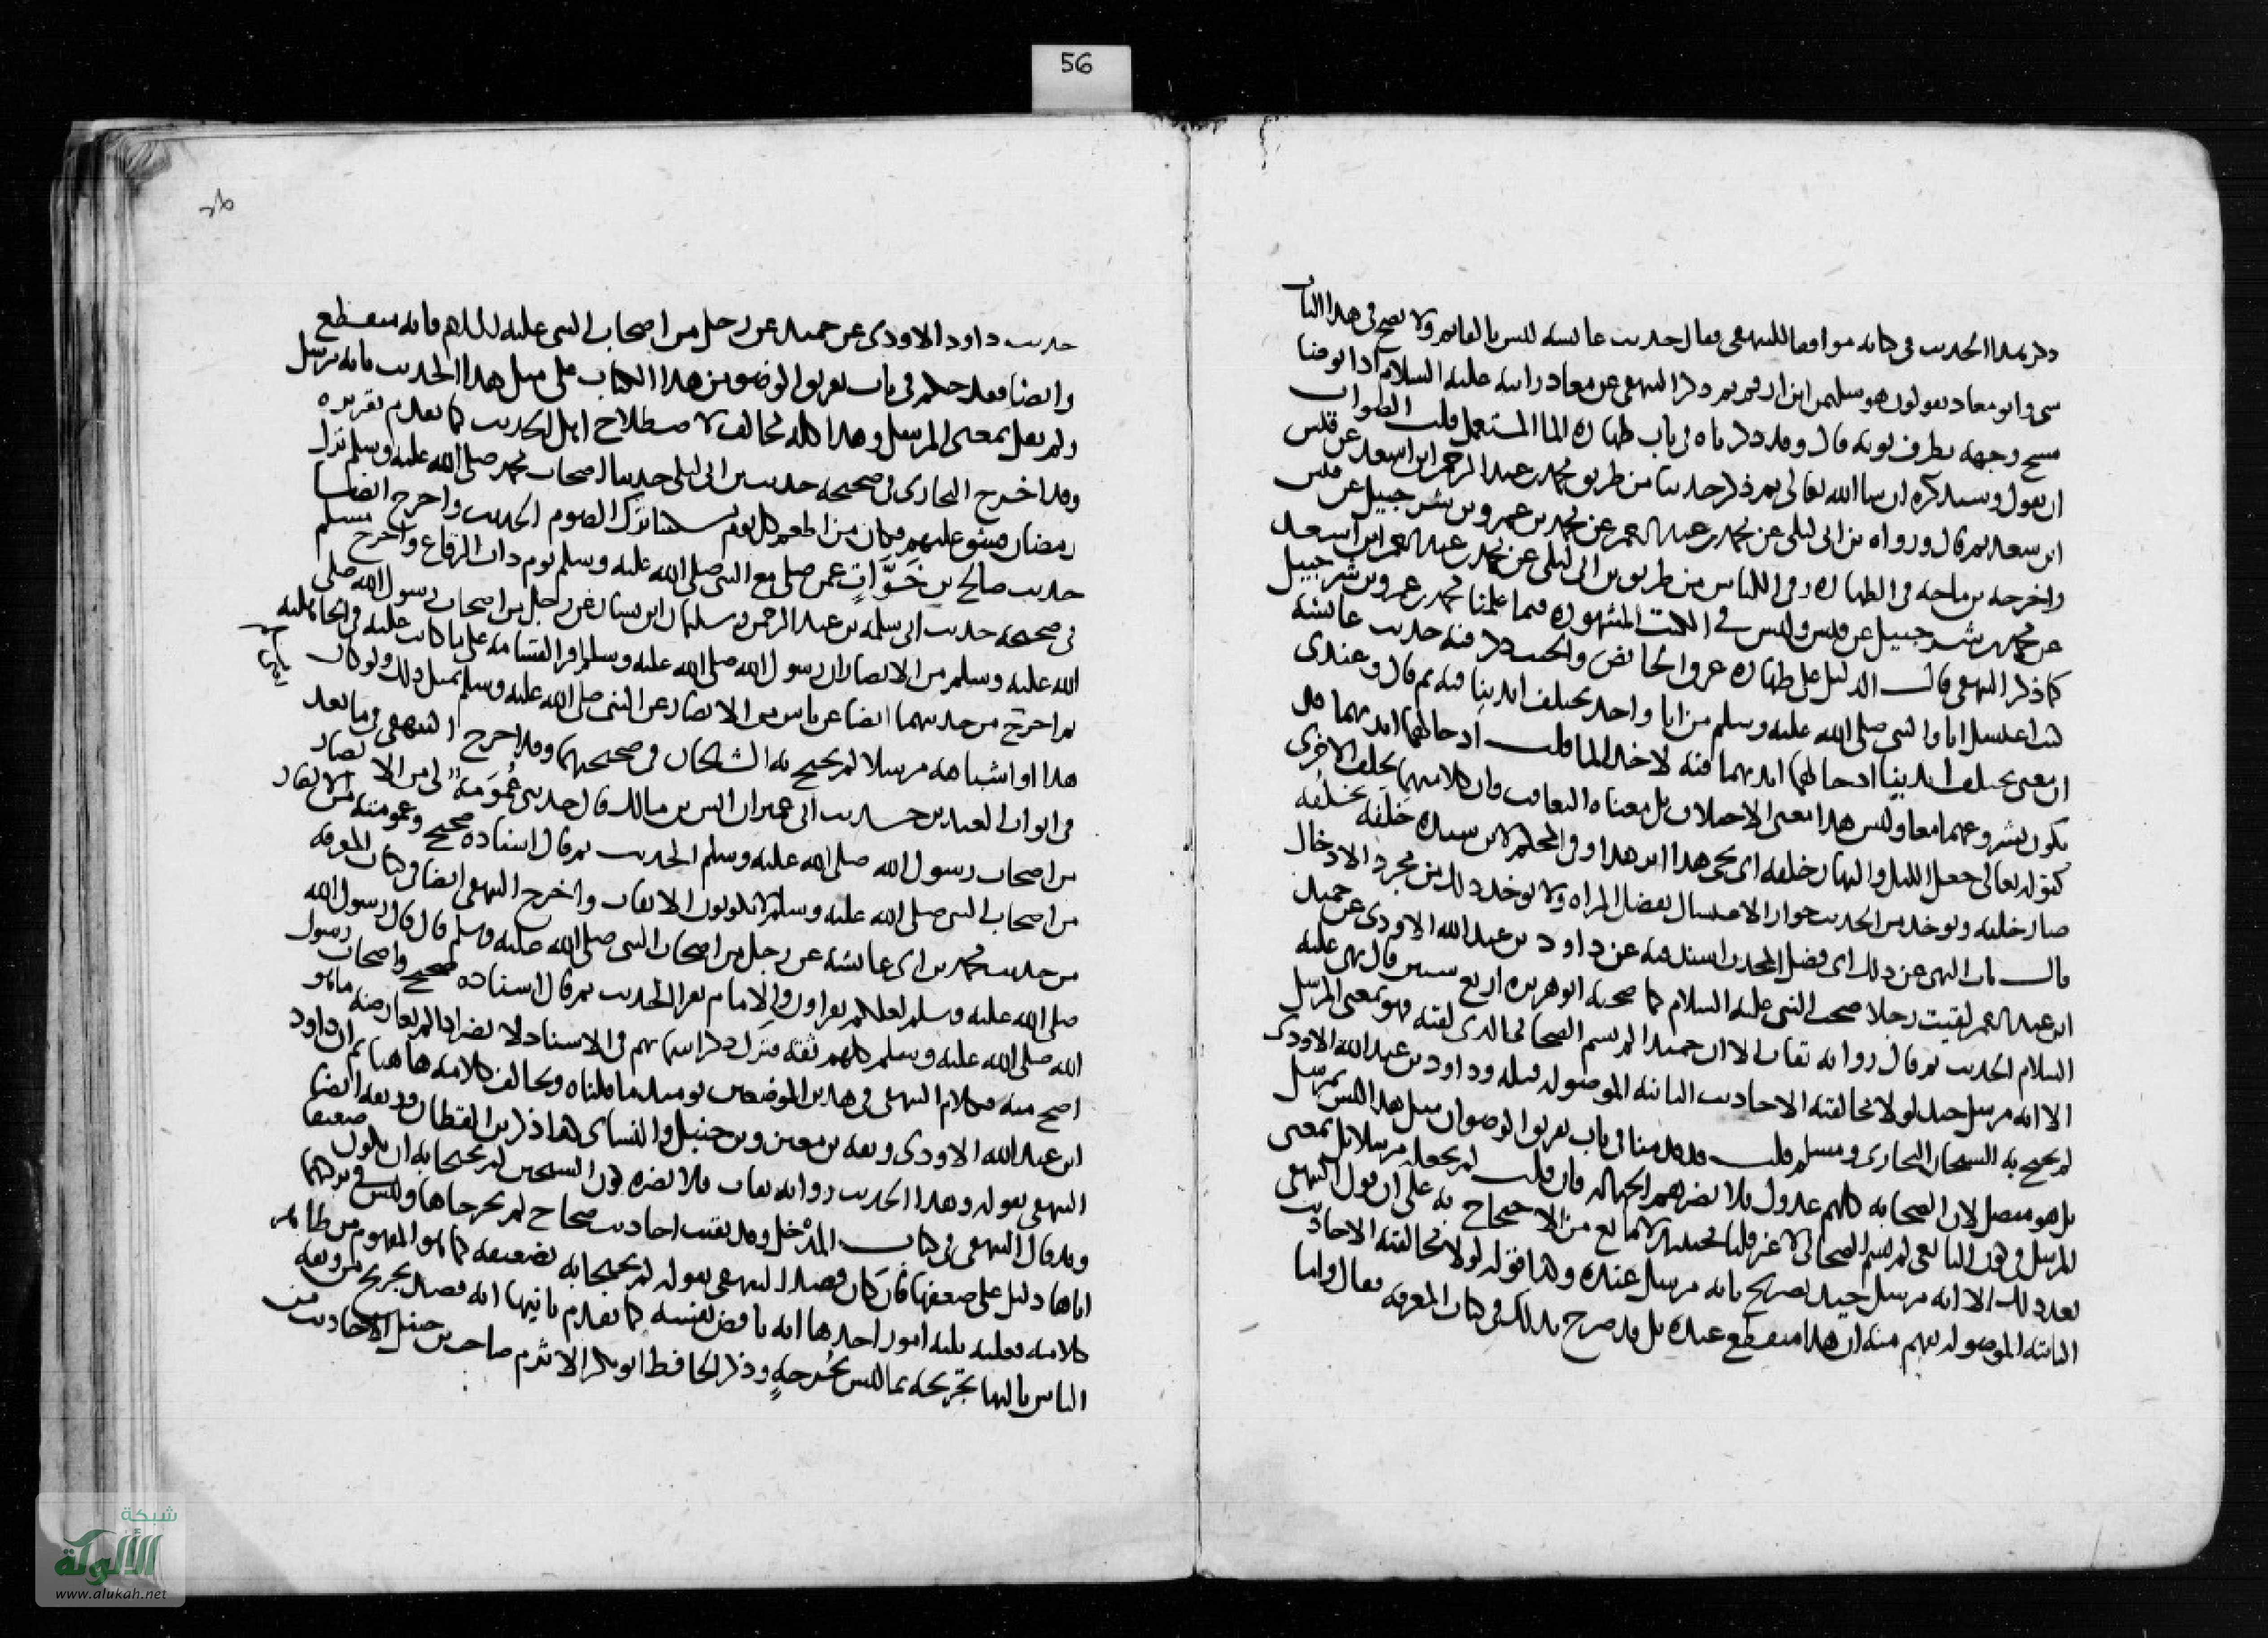 56
ذكر هذا الحديث في كتابه موافقا للبيهقي فقال حديث عائشة ليس بالقائم ولا يصح في هذا الباب
شي وابو معاذ يقولون هو سليمن ابن ارقم ثم ذكر البيهقي عن معاذ رايته عليه السلام اذا توضا
مسح وجهه بطرف ثوبه قال وقد ذكرناه في باب طهارة الما المستعمل قلت الصواب
ان يقول وسنذكره ان شا الله تعالى ثم ذكر حديثا من طريق محمد بن عبد الرحمن ابن اسعد عن قيس
ابن سعد ثم قال ورواه بن ابي ليلى عن محمد بن عبد الرحمن عن محمد بن عمرو بن شرحبيل عن قيس
واخرجه بن ماجه في الطهارة وفي اللباس من طريق بن ابي ليلى عن محمد بن عبد الرحمن ابن اسعد
عن محمد بن شرحبيل عن قيس وليس في الكتب المشهورة فيما علمنا محمد بن عمرو بن شرحبيل
كما ذكر البيهقي قال الدليل على طهارة عرق الحائض والجنب ذكر فيه حديث عائشة
كنت اغتسل انا والنبي صلى الله عليه وسلم من انا واحد تختلف ايدينا فيه ثم قال وعندي
ان معنى تختلف ايدينا ادخالهما ايديهما فيه لاخذ الما قلت ادخالهما ايديهما قد
يكون بشروعهما معا وليس هذا معنى الاختلاف بل معناه التعاقب وان كلا منهما يخلف الاخرى
كقوله تعالى جعل الليل والنهار خلفة اى يجى هذا اثر هذا وفي المحكم لابن سيده خلفه يخلفه
صار خليفه ويوخذ من الحديث جواز الاغتسال بفضل المراه ولا يوخذ ذلك من مجرد الادخال
قال باب النهي عن ذلك اى فضل المحدث اسند فيه عن داود بن عبد الله الاودي عن حميد
ابن عبد الرحمن لقيت رجلا صحب النبي عليه السلام كما صحبه ابو هريره اربع سنين قال نهى عليه
السلام الحديث ثم قال رواته ثقات الا ان حميدا لم يسم الصحابي الذى لقيه فهو بمعنى المرسل
الا انه مرسل جيد لولا مخالفته الاحاديث الثابته الموصوله قبله وداود بن عبد الله الاودي
لم يحتج به الشيخان البخاري ومسلم قلت قد قدمنا في باب تفريق الوضو ان مثل هذا ليس بمرسل
بل هو متصل لان الصحابه كلهم عدول فلا تضرهم الجهاله فان قلت لم يجعله مرسلا بل بمعنى
المرسل في كون التابعي لم يسم الصحابي لا غير قلنا فحينئذ لا مانع من الاحتجاج به على ان قول البيهقي
بعد ذلك الا انه مرسل جيد تصريح بانه مرسل عنده وكذا قوله لولا مخالفته الاحاديث
الثابته الموصوله يفهم منه ان هذا منقطع عنده بل قد صرح بذلك في كتاب المعرفه فقال واما
حديث داود الاودي عن حميد عن رجل من اصحاب النبي عليه السلام فانه منقطع
وايضا فقد حكم في باب تفريق الوضو من هذا الكتاب على مثل هذا الحديث بانه مرسل
ولم يقل بمعنى المرسل وهذا كله مخالف لاصطلاح اهل الحديث كما تقدم تقريره
وقد اخرج البخاري في صحيحه حديث بن ابي ليلى حدثنا اصحاب محمد صلى الله عليه وسلم نزل
رمضان فشق عليهم فكان من اطعم كل يوم مسكينا ترك الصوم الحديث واخرج ايضا
حديث صالح بن خَوَّاتٍ عمن صلى مع النبي صلى الله عليه وسلم يوم ذات الرقاع واخرج مسلم
في صحيحه حديث ابي سلمه بن عبد الرحمن وسليمان ابن يسار عن رجل من اصحاب رسول الله صلى
الله عليه وسلم من الانصار ان رسول الله صلى الله عليه وسلم اقر القسامة على ما كانت عليه في الجاهليه
ثم اخرج من حديثهما ايضا عن ناس من الانصار عن النبي صلى الله عليه وسلم بمثل ذلك ولو كان
هذا او اشباهه مرسلا لم يحتج به الشيخان في صحيحيهما وقد اخرج البيهقي فيما بعد
في ابواب العيد بن حديث ابي عمير ان انس بن مالك قال حدثني عُمُومَةٌ لي من الانصار
من اصحاب رسول الله صلى الله عليه وسلم الحديث ثم قال اسناده صحيح وعمومته من الانصار
من اصحاب النبي صلى الله عليه وسلم لا يكونون الا ثقات واخرج البيهقي ايضا في كتاب المعرفه
من حديث محمد بن ابى عائشة عن رجل من اصحاب النبي صلى الله عليه وسلم قال قال رسول الله
صلى الله عليه وسلم لعلكم تقراون والامام يقرا الحديث ثم قال اسناده صحيح واصحاب رسول
الله صلى الله عليه وسلم كلهم ثقه فترك ذكر اسمائهم في الاسناد لا يضر اذا لم يعارضه ما هو
اصح منه فكلام البيهقي في هذين الموضعين يؤيد ما قلناه ويخالف كلامه هاهنا ثم ان داود
ابن عبد الله الاودي وثقه بن معين وبن حنبل والنساى كذا ذكر بن القطان ووثقه ايضا
البيهقي بقوله وهذا الحديث رواته ثقات فلا يضره كون الشيخين لم يحتجا به ان يكون ضعيفا
وقد قال البيهقي في كتاب المدخل وقد بقيت احاديث صحاح لم يخرجاها وليس في تركهما
اياها دليل على ضعفها فان كان قصد البيهقي بقوله لم يحتجا به تضعيفه كما هو المفهوم من ظاهر
كلامه فعليه فيه امور احدها انه ناقض نفسه كما تقدم ثانيها انه قصد تجريح من وثقه
الناس ثالثها تجريحه بما ليس بجُرحةٍ وذكر الحافظ ابو بكر الاثرم صاحب بن حنبل الاحاديث من
شبكة
الألوكة
www.alukah.net